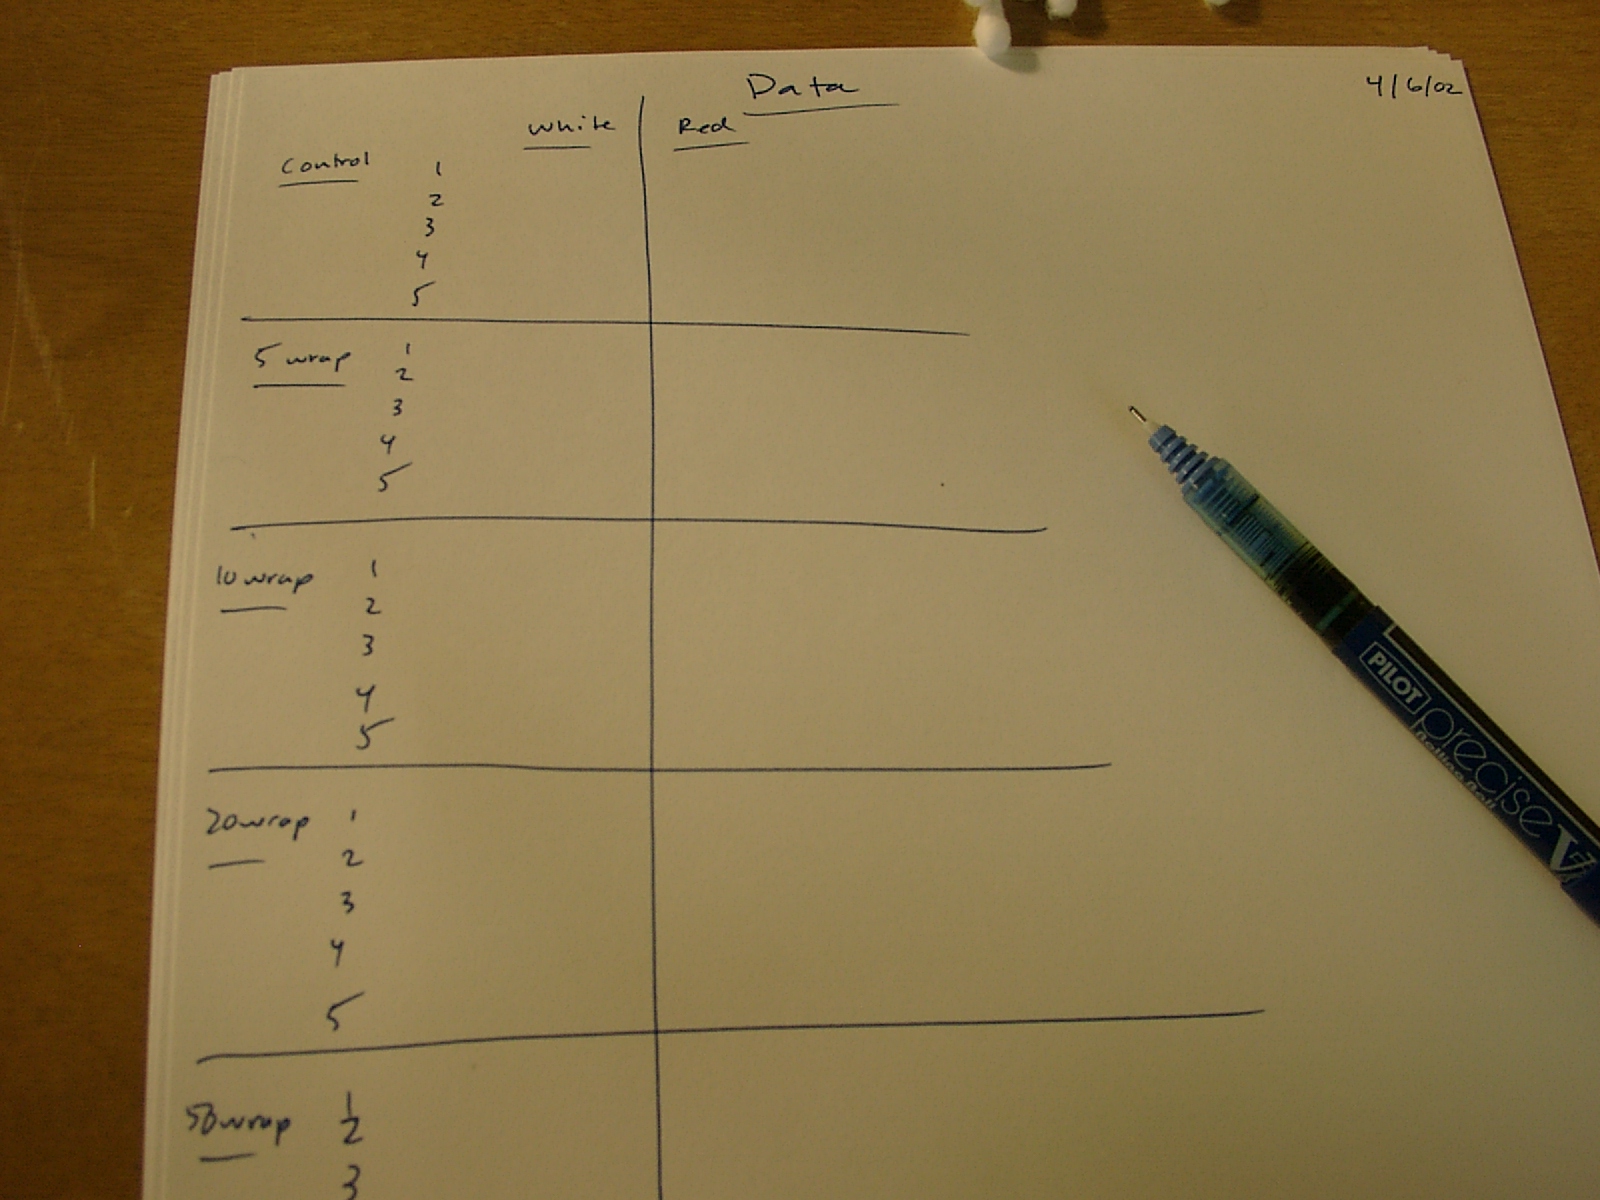 Data
4/6/02
White Red
Control 1
2
3
4
5
5 wrap 1
2
3
4
5
10 wrap 1
2
3
4
5
20 wrap 1
2
3
4
5
50 wrap 1
2
3
PILOT precise V7
Rolling Ball